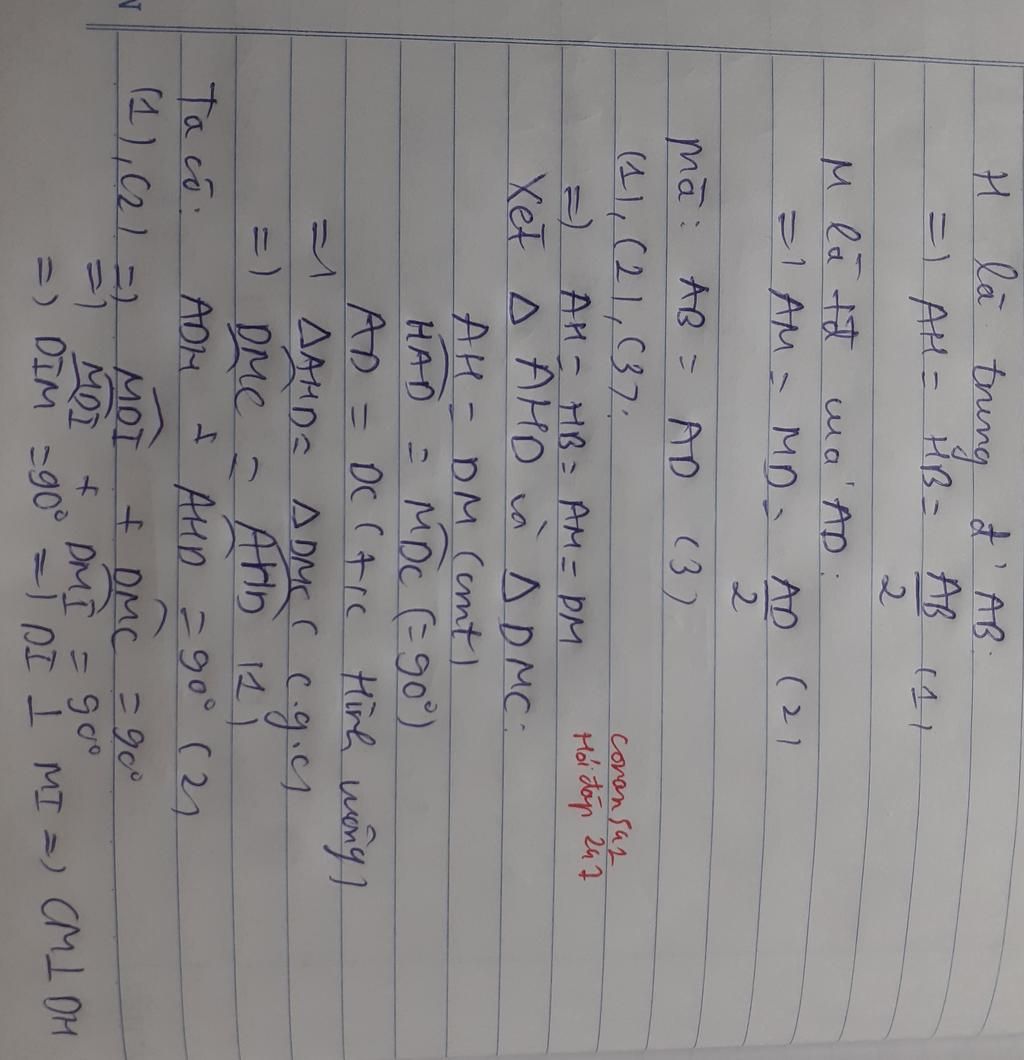 H là trung đ' AB.
=) AH = HB = AB/2 (1)
M là tđ của AD.
=) AM = MD = AD/2 (2)
Mà: AB = AD (3)
(1), (2), (3):
=) AH = HB = AM = DM
conan 542
Hỏi đáp 247
Xét Δ AHD và Δ DMC:
AH = DM (cmt)
HAD = MDC (=90°)
AD = DC (t/c Hình vuông)
=) ΔAHD = ΔDMC (c.g.c)
=) DMC = AHD (1)
Ta có: ADH + AHD = 90° (2)
(1), (2) =) MDI + DMC = 90°
=) MDI + DMI = 90°
=) DIM = 90° =) DI ⊥ MI =) CM ⊥ DH